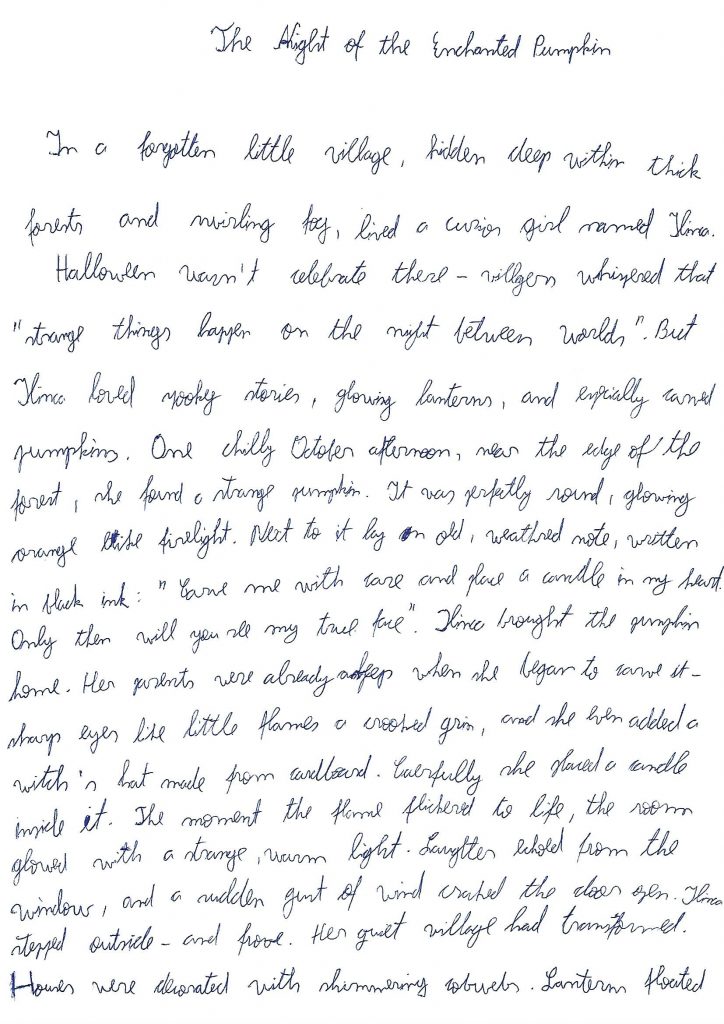 The Night of the Enchanted Pumpkin
In a forgotten little village, hidden deep within thick
forests and swirling fog, lived a curios girl named Ilinca.
Halloween wasn't celebrate there – villgers whispered that
"strange things happen on the night between worlds". But
Ilinca loved spooky stories, glowing lanterns, and espcially carved
pumpkins. One chilly October afternoon, near the edge of the
forest, she found a strange pumpkin. It was perfectly round, glowing
orange like firelight. Next to it lay an old, weathred note, written
in black ink: "Carve me with care and place a candle in my heart.
Only then will you see my true face". Ilinca brought the pumpkin
home. Her parents were already asleep when she began to carve it –
sharp eyes like little flames a crooked grin, and she even added a
witch's hat made from cardboard. Caerfully she placed a candle
inside it. The moment the flame flickered to life, the room
glowed with a strange, warm light. Laughter echoed from the
window, and a sudden gust of wind crashed the door open. Ilinca
stepped outside – and froze. Her quiet village had transformed.
Houses were decorated with shimmering cobwebs. Lanterns floated